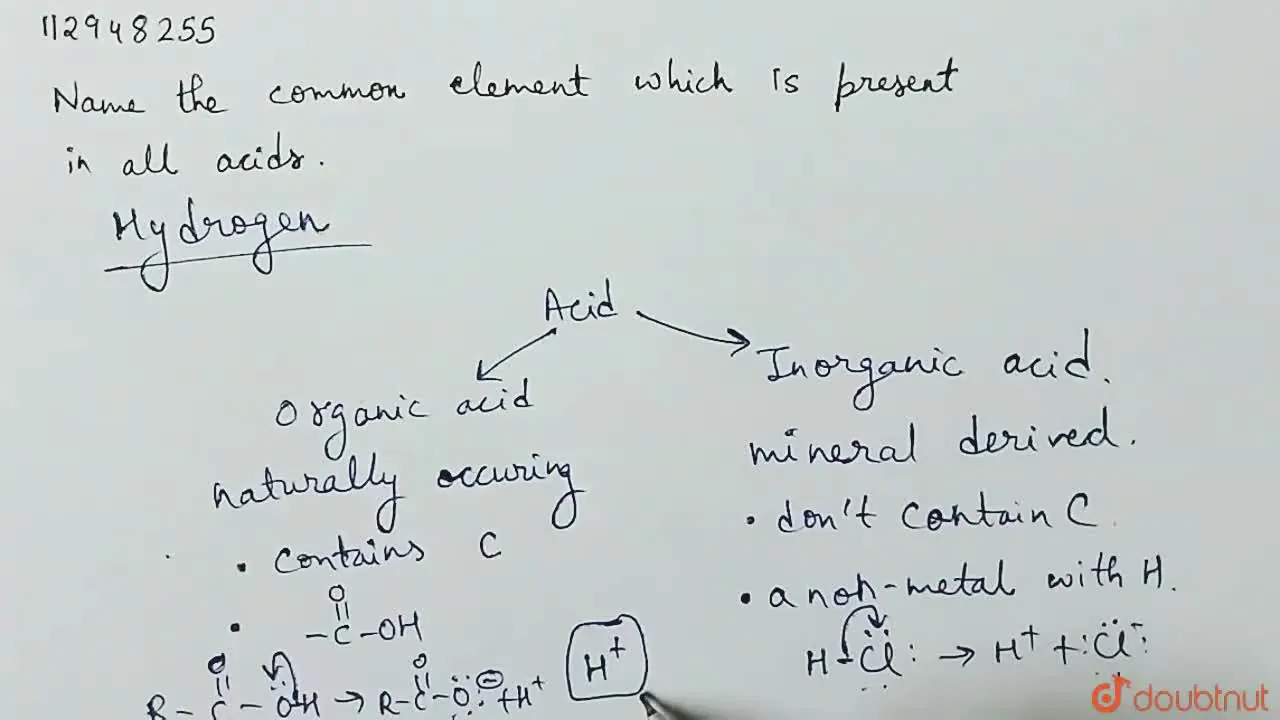 112948255
Name the common element which is present
in all acids.
Hydrogen
Acid
Organic acid
naturally occuring
• contains C
O
• -C-OH
O
R-C-OH → R-C-O:⊖ + H+
O
H+
Inorganic acid.
mineral derived.
• don't contain C.
• a non-metal with H.
H-Cl: → H+ + :Cl:-
doubtnut